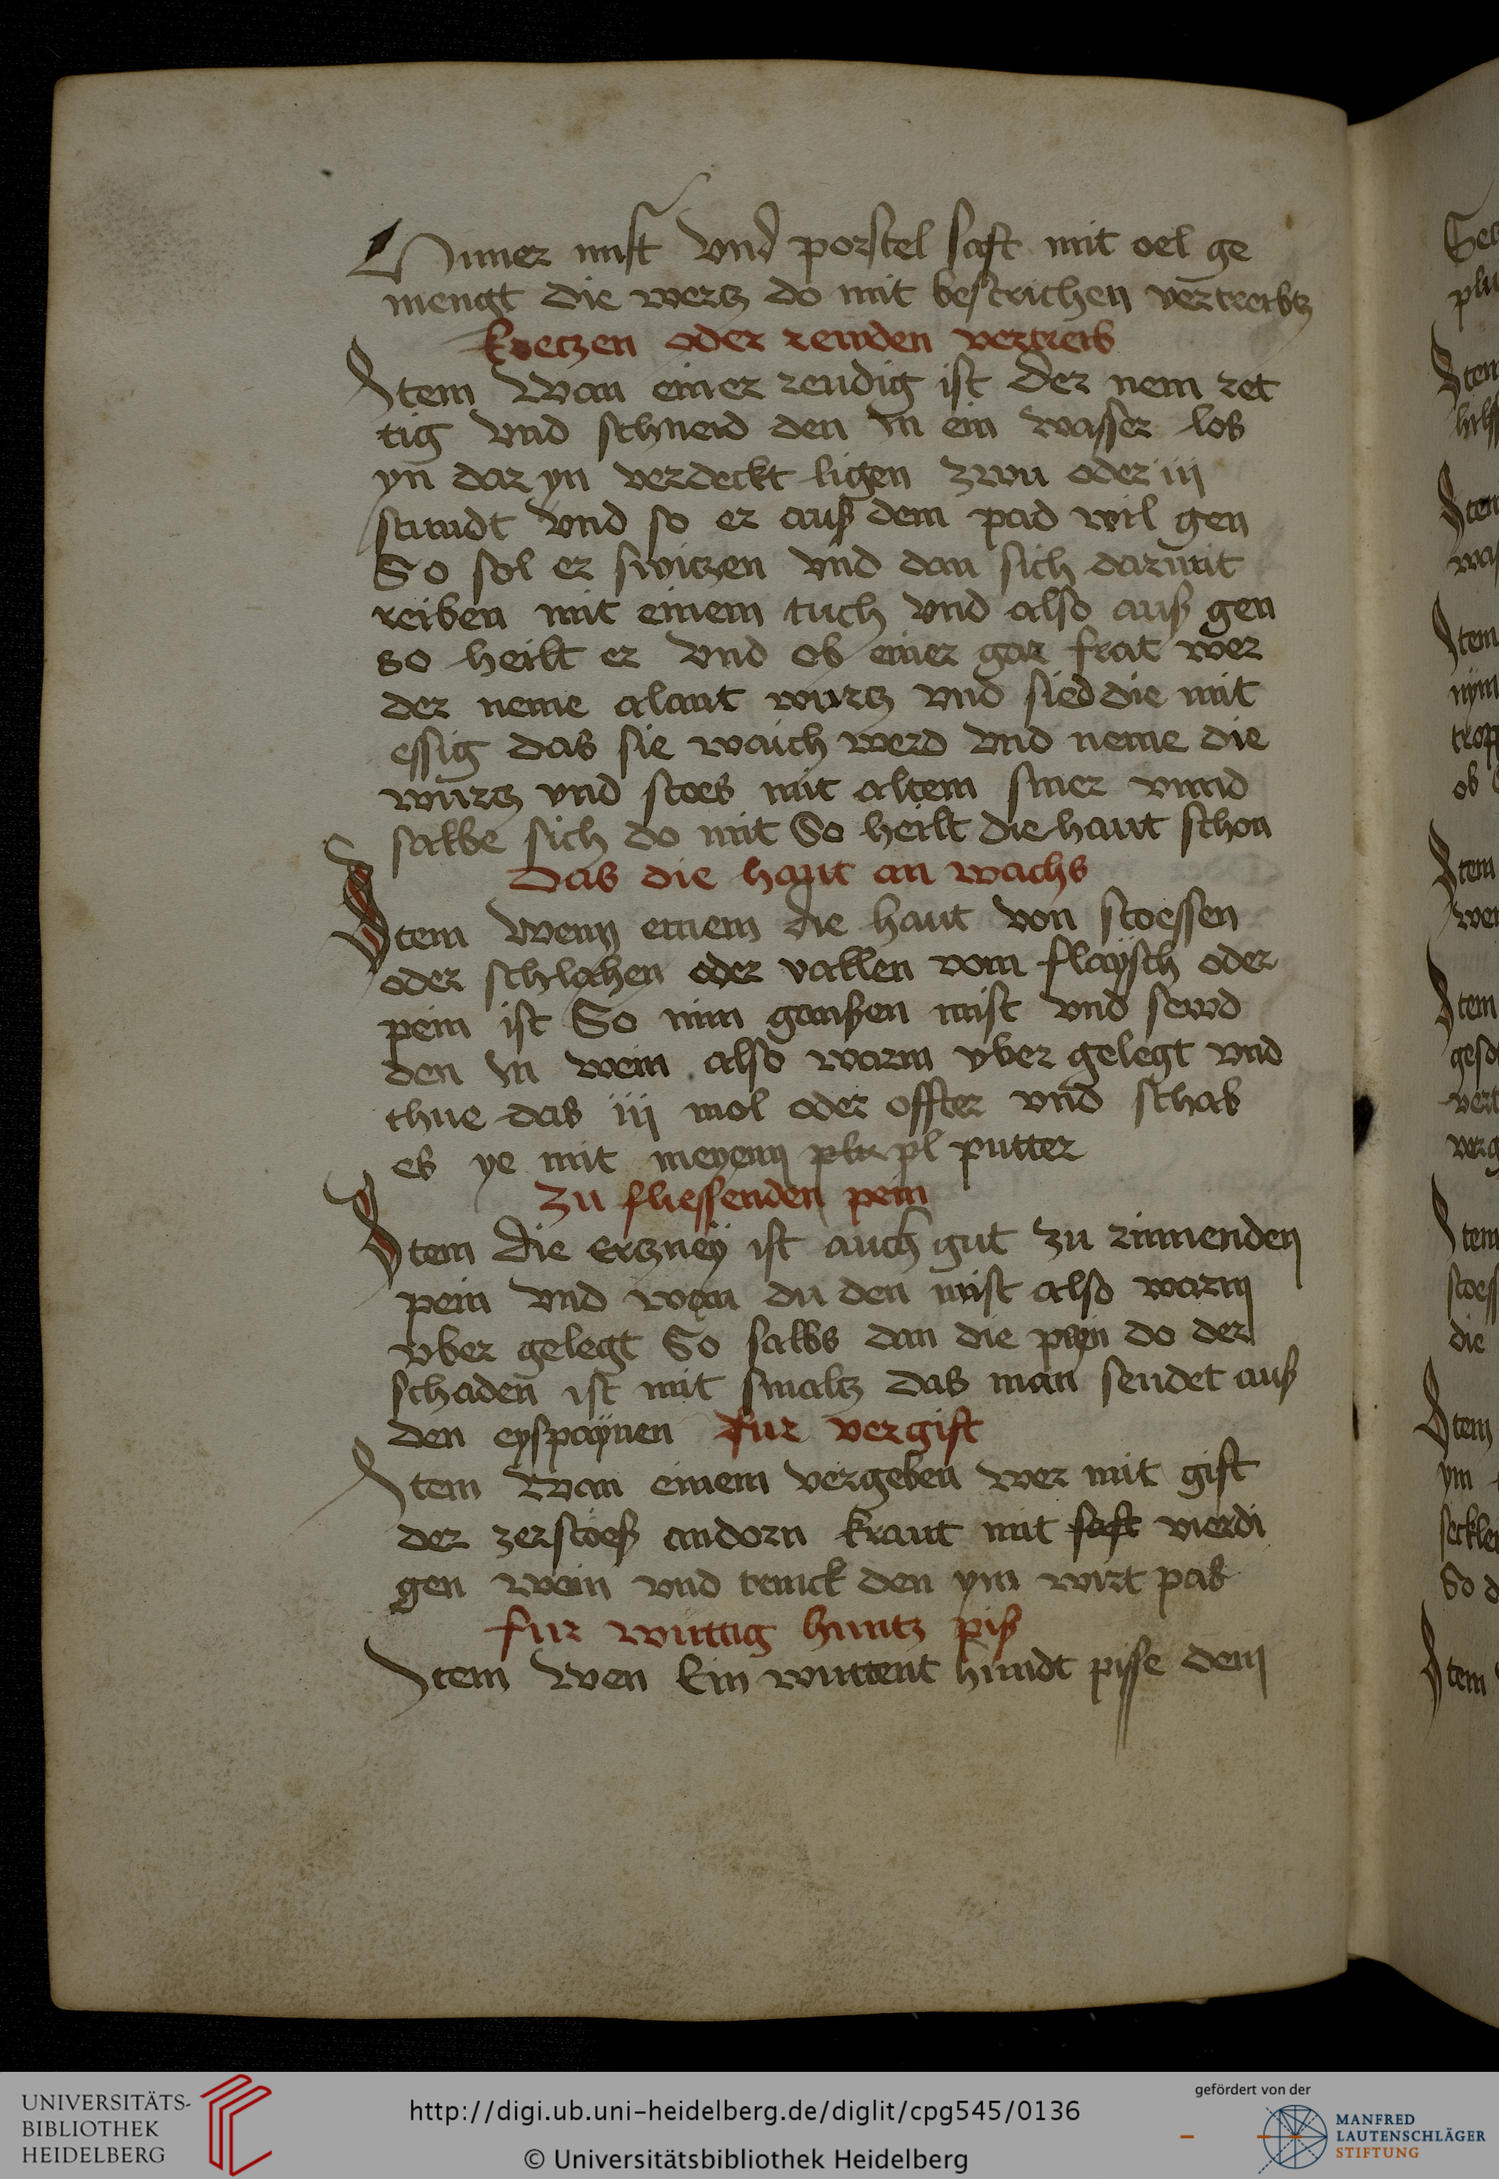 Hüner mist vnd porstel saft mit oel ge
mengt die wertz do mit bestrichen vertreibtz
kretzen oder reuden vertreib
Item Wan einer reudig ist der nem ret
tig vnd schneid den In ein wasser los
yn dar yn verdeckt ligen zwu oder iij
stundt vnd so er auß dem pad wil gen
So sol er switzen vnd dan sich darmit
reiben mit einem tuch vnd also auß gen
so heilt er vnd ob einer gar frat wer
der neme alant wurtz vnd sied die mit
essig das sie waich werd vnd neme die
wurtz vnd stoes mit altem smer vnnd
salbe sich do mit So heilt die haut schon
Das die haut an wachs
Item Wenn einem die haut von stoessen
oder schlahen oder vallen vom flaÿsch oder
pein ist So nim ganßen mist vnd sewd
den In wein also warm vber gelegt vnd
thue das iij mol oder offter vnd schab
es ye mit meyenn pl putter
zu fliessenden pein
Item die ertzneÿ ist auch gut zu rinnenden
pein vnd wan du den mist also warm
vber gelegt So salbs dan die peyn do der
schaden ist mit smaltz das man seudet auß
den eyspaÿnen fur vergift
Item Wan einem vergeben wer mit gift
der zerstoeß andorn kraut mit saft vierdi
gen wein vnd trinck den ym wirt pas
fur wuttig huntz piß
Item Wen Ein wuttent hundt pisse dem
UNIVERSITÄTS-
BIBLIOTHEK
HEIDELBERG
http://digi.ub.uni-heidelberg.de/diglit/cpg545/0136
© Universitätsbibliothek Heidelberg
gefördert von der
MANFRED
LAUTENSCHLÄGER
STIFTUNG